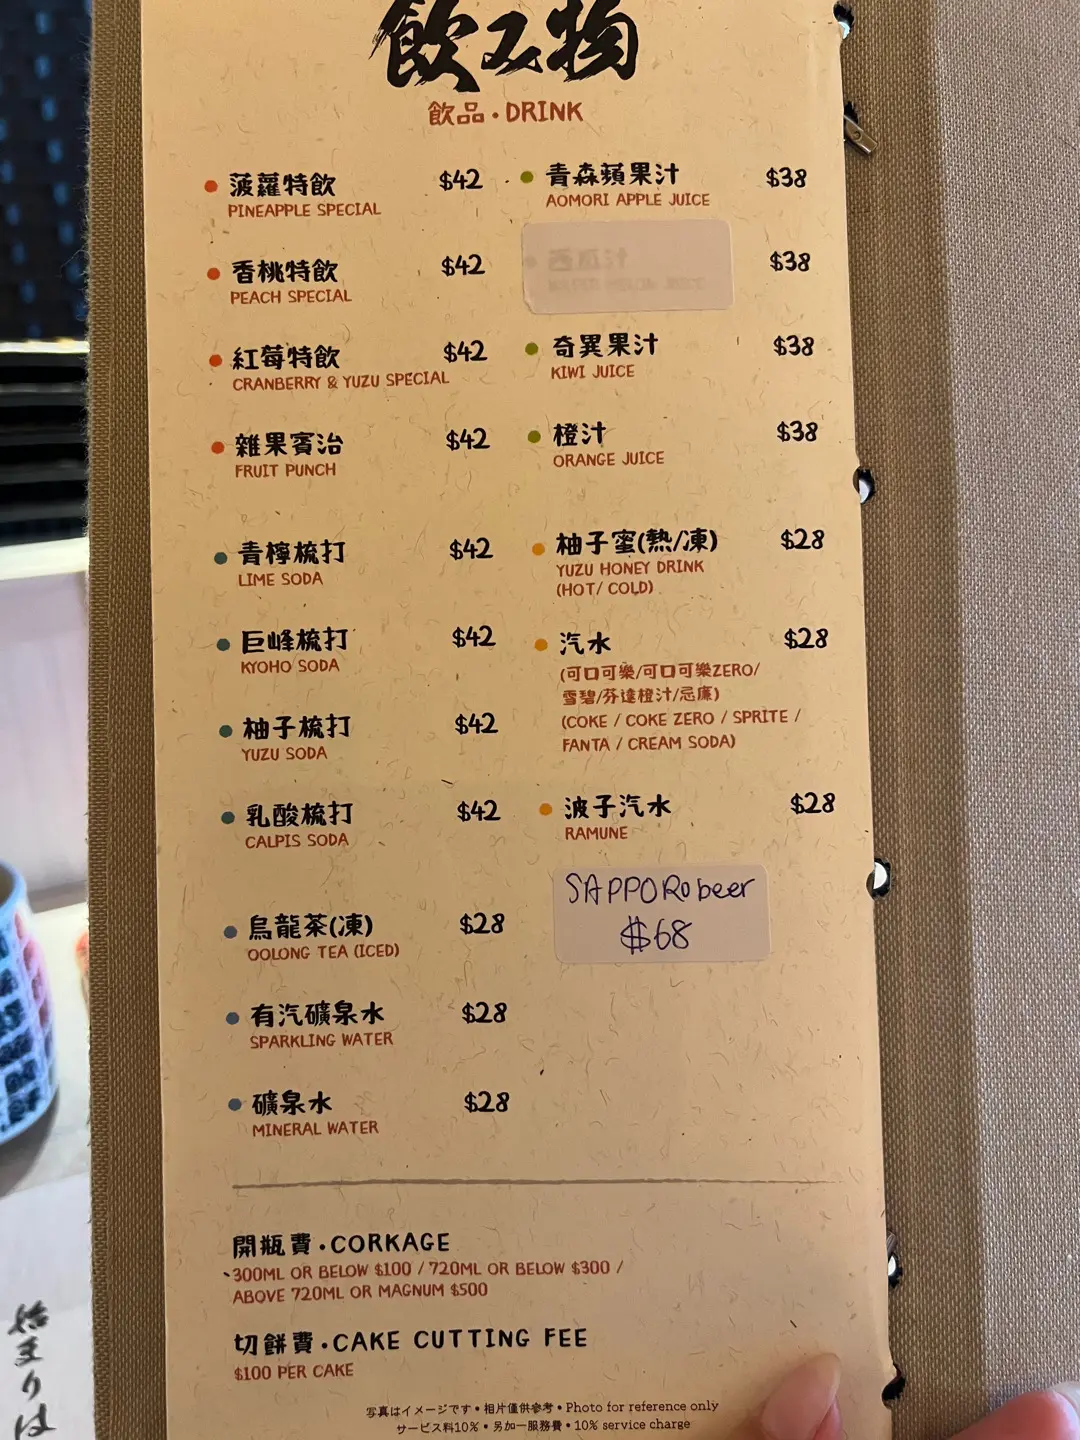 飲み物
飲品・DRINK
菠蘿特飲 $42
PINEAPPLE SPECIAL
香桃特飲 $42
PEACH SPECIAL
紅莓特飲 $42
CRANBERRY & YUZU SPECIAL
雜果賓治 $42
FRUIT PUNCH
青檸梳打 $42
LIME SODA
巨峰梳打 $42
KYOHO SODA
柚子梳打 $42
YUZU SODA
乳酸梳打 $42
CALPIS SODA
烏龍茶(凍) $28
OOLONG TEA (ICED)
有汽礦泉水 $28
SPARKLING WATER
礦泉水 $28
MINERAL WATER
青森蘋果汁 $38
AOMORI APPLE JUICE
$38
奇異果汁 $38
KIWI JUICE
橙汁 $38
ORANGE JUICE
柚子蜜(熱/凍) $28
YUZU HONEY DRINK
(HOT/ COLD)
汽水 $28
(可口可樂/可口可樂ZERO/
雪碧/芬達橙汁/忌廉)
(COKE / COKE ZERO / SPRITE /
FANTA / CREAM SODA)
波子汽水 $28
RAMUNE
SAPPORO beer
$68
開瓶費・CORKAGE
300ML OR BELOW $100 / 720ML OR BELOW $300 /
ABOVE 720ML OR MAGNUM $500
切餅費・CAKE CUTTING FEE
$100 PER CAKE
写真はイメージです・相片僅供參考・Photo for reference only
サービス料10%・另加一服務費・10% service charge
始まりは